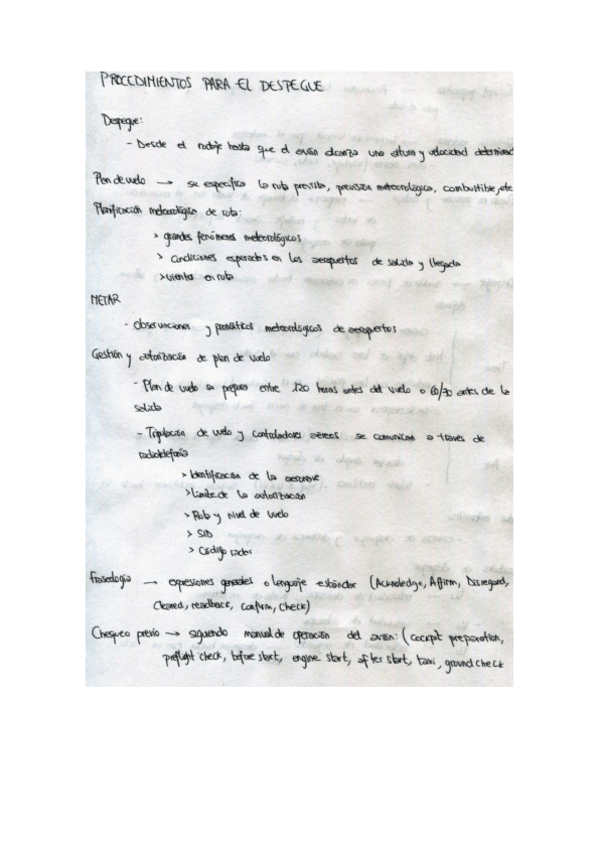 PROCEDIMIENTOS PARA EL DESPEGUE
Despegue:
- Desde el rodaje hasta que el avión alcanza una altura y velocidad determinad
Plan de vuelo → se especifica la ruta prevista, previsión meteorológica, combustible, etc
Planificación meteorológica de ruta:
> grandes fenómenos meteorológicos
> Condiciones esperadas en los aeropuertos de salida y llegada
> vientos en ruta
METAR
- Observaciones y pronósticos meteorológicos de aeropuertos
Gestión y autorización de plan de vuelo
- Plan de vuelo se prepara entre 120 horas antes del vuelo o 60/30 antes de la
salida
- Tripulación de vuelo y controladores aéreos se comunican a través de
radiotelefonía
> Identificación de la aeronave.
> Límite de la autorización
> Ruta y nivel de vuelo
> SID
> Código radar
Fraseología → expresiones generales o lenguaje estándar (Acknoledge, Affirm, Disregard,
Cleared, readback, Confirm, Check)
Chequeo previo → siguiendo manual de operación del avión: (Cockpit preparation,
preflight check, before start, engine start, after start, taxi, ground check